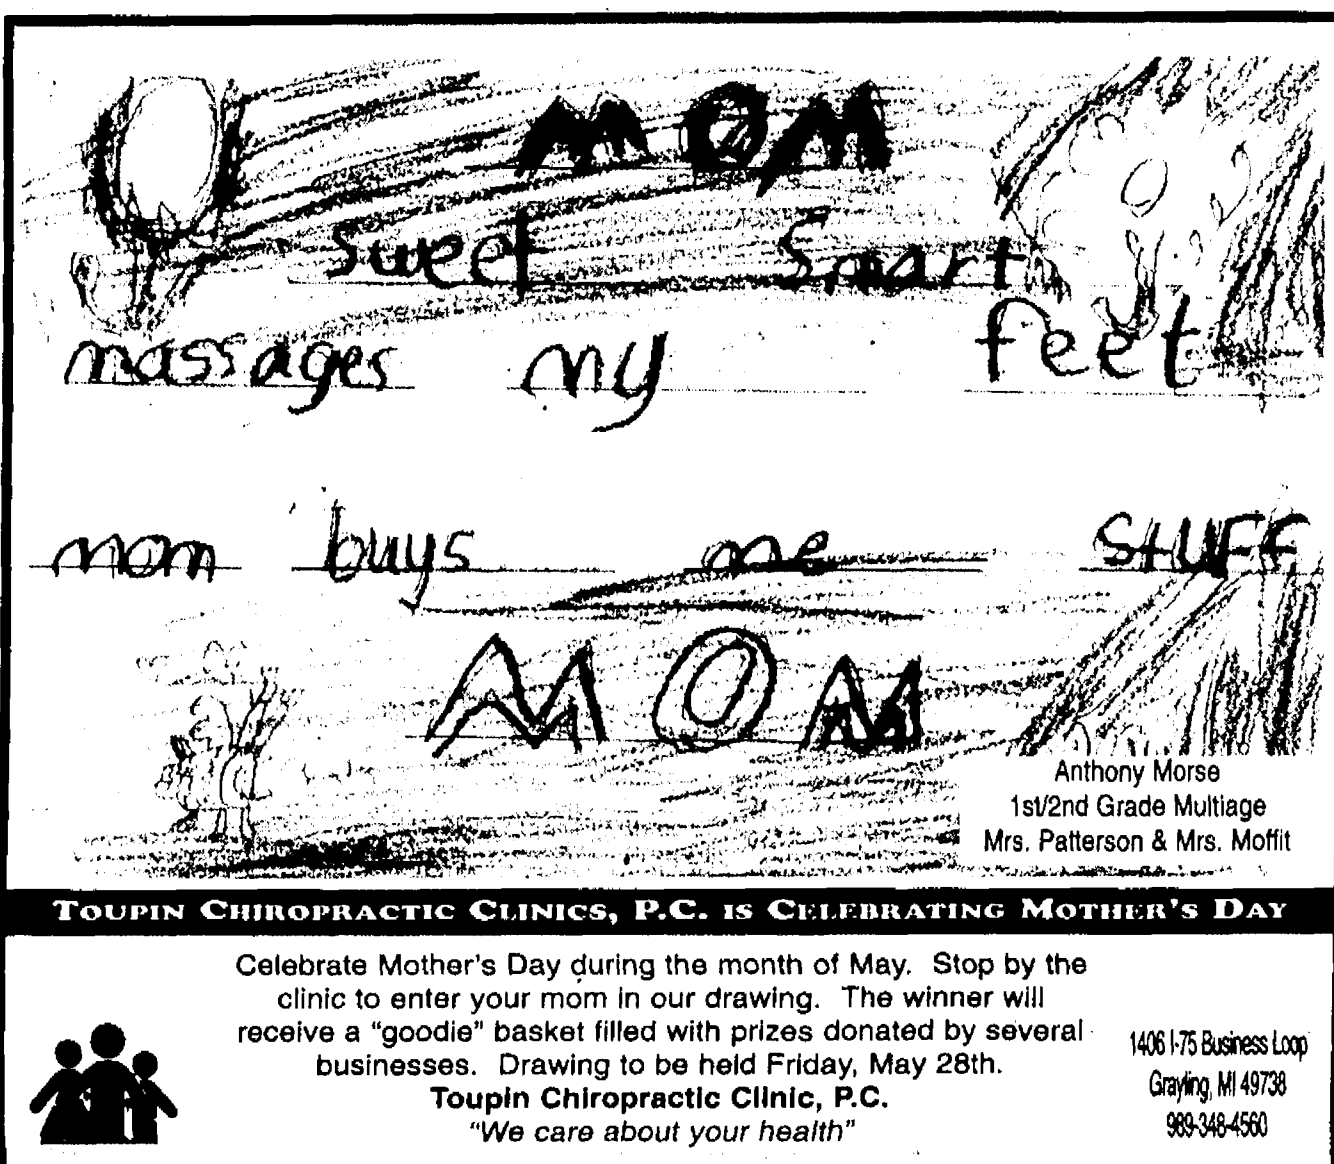 MOM
Sweet Smart
massages my feet
mom buys me STUFF
MOM
Anthony Morse
1st/2nd Grade Multiage
Mrs. Patterson & Mrs. Moffit
TOUPIN CHIROPRACTIC CLINICS, P.C. IS CELEBRATING MOTHER'S DAY
Celebrate Mother's Day during the month of May. Stop by the
clinic to enter your mom in our drawing. The winner will
receive a "goodie" basket filled with prizes donated by several
businesses. Drawing to be held Friday, May 28th.
Toupin Chiropractic Clinic, P.C.
"We care about your health"
1406 I-75 Business Loop
Grayling, MI 49738
989-348-4560